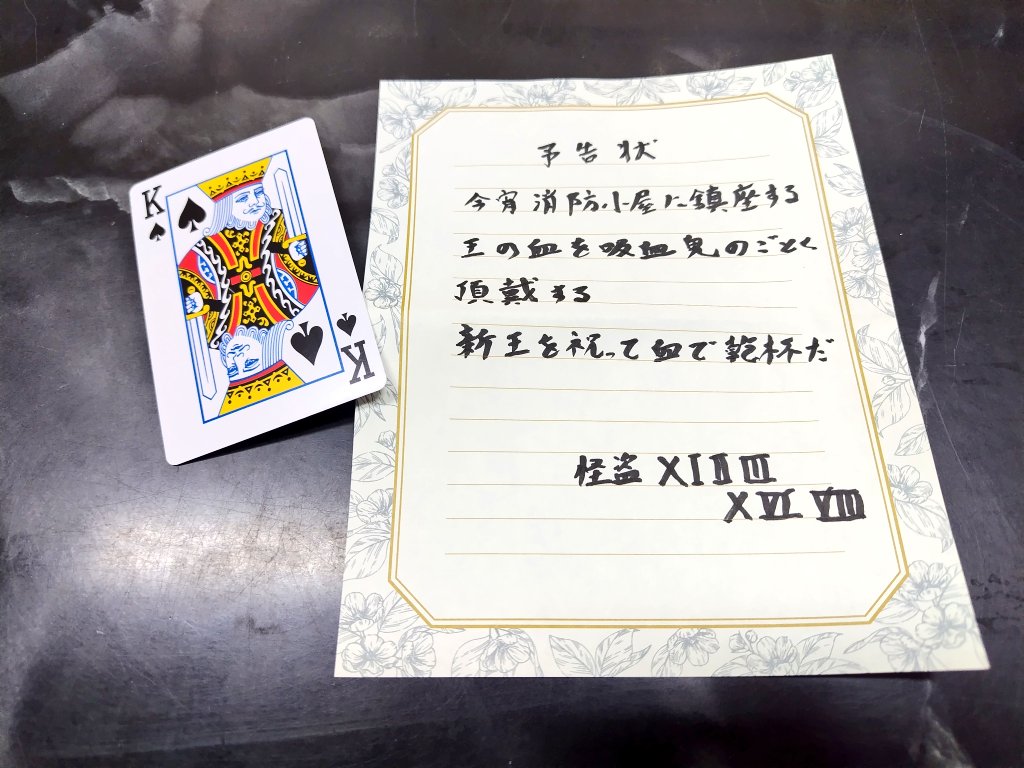 K
K
予告状
今宵消防小屋に鎮座する
王の血を吸血鬼のごとく
頂戴する
新王を祝って血で乾杯だ
怪盗 X I II III
X VI VIII